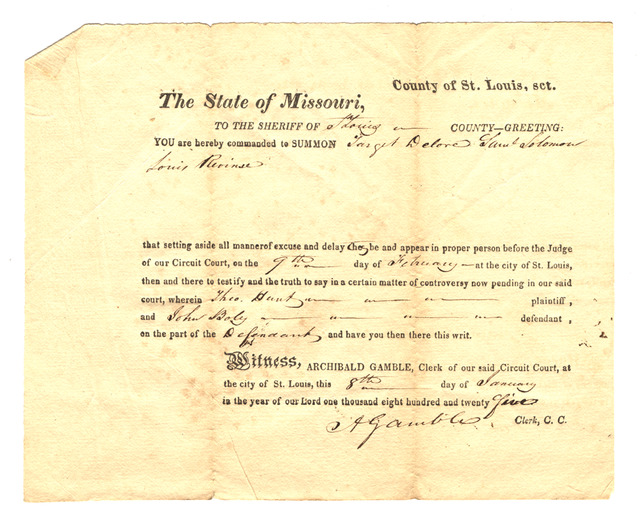 County of St. Louis, sct.
The State of Missouri,
TO THE SHERIFF OF St Louis COUNTY—GREETING:
YOU are hereby commanded to SUMMON Delore Saml Solomon
Louis
that setting aside all mannerof excuse and delay they be and appear in proper person before the Judge
of our Circuit Court, on the 9th day of February — at the city of St. Louis,
then and there to testify and the truth to say in a certain matter of controversy now pending in our said
court, wherein Theo. Hunt plaintiff,
and John defendant,
on the part of the Defendant and have you then there this writ.
Witness, ARCHIBALD GAMBLE, Clerk of our said Circuit Court, at
the city of St. Louis, this 8th day of January
in the year of our Lord one thousand eight hundred and twenty five
A Gamble Clerk, C. C.